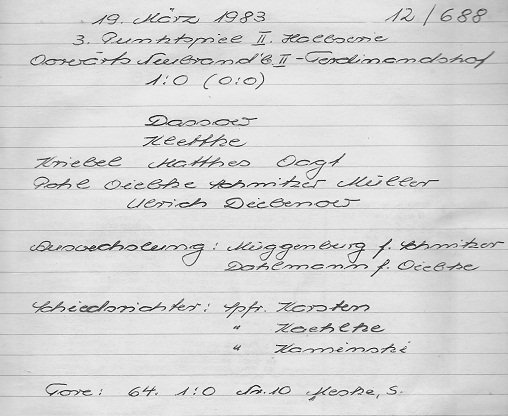 19. März 1983 12/688
3. Punktspiel II. Halbserie
Vorwärts Neubrand'b II - Ferdinandshof
1:0 (0:0)
Dassow
Kleffke
Kriebel Matthes Vogt
Pohl Vielhe Schnitzer Müller
Ulrich Diebenow
Auswechslung: Müggenburg f. Schnitzer
Dahlmann f. Vielhe
Schiedsrichter: Spfr. Karsten
" Koehlke
" Kaminski
Tore: 64. 1:0 Nr. 10 Meske, S.